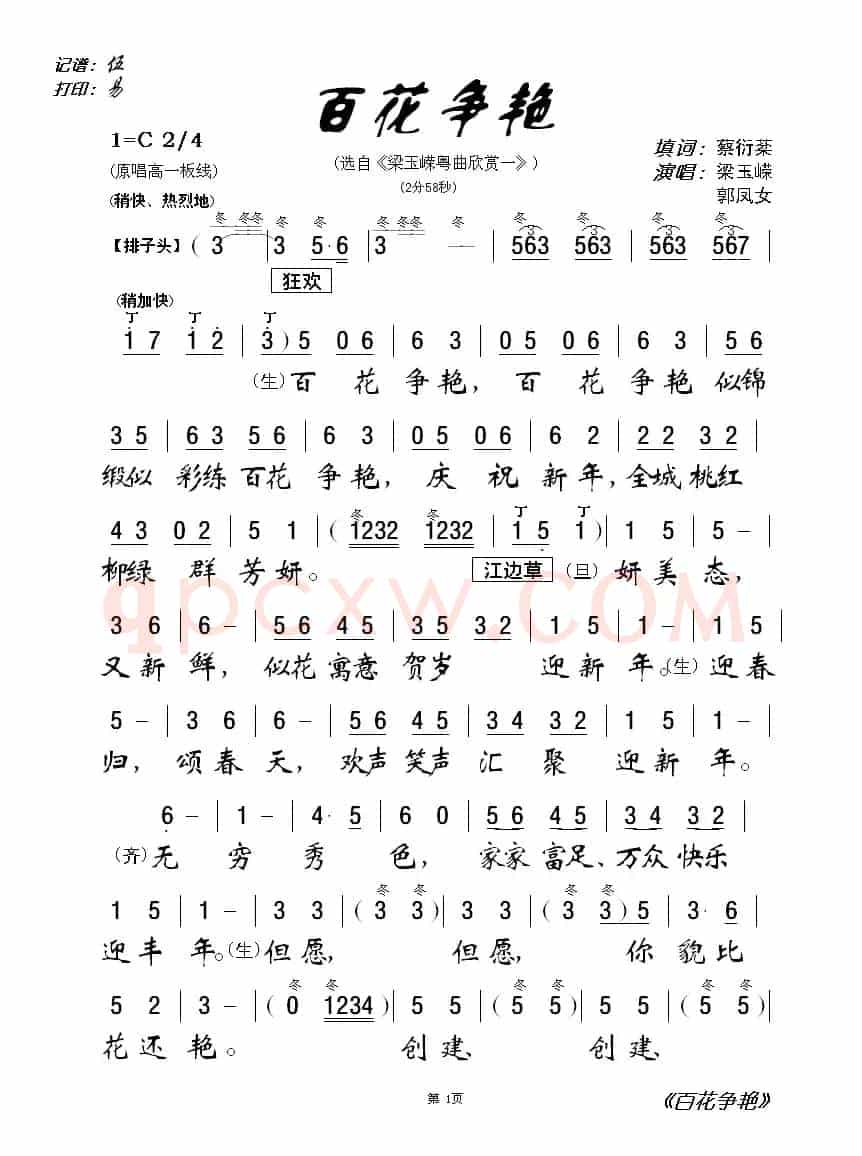 记谱：伍
打印：易
百花争艳
1=C 2/4
(原唱高一板线)
(稍快、热烈地)
(选自《梁玉嵘粤曲欣赏一》)
(2分58秒)
填词：蔡衍棻
演唱：梁玉嵘
郭凤女
冬 冬冬 冬 冬 冬冬 冬 冬 冬 冬 冬
【排子头】 ( 3 | 3 5·6 | 3 — | 563 563 | 563 567 |
狂欢
(稍加快)
丁 丁 丁
1 7 1 2 | 3 ) 5 0 6 | 6 3 | 0 5 0 6 | 6 3 | 5 6
(生) 百 花 争 艳， 百 花 争 艳 似锦
3 5 | 6 3 5 6 | 6 3 | 0 5 0 6 | 6 2 | 2 2 3 2 |
缎似 彩练 百花 争 艳， 庆 祝 新 年，全城 桃红
冬 冬 丁 丁
4 3 0 2 | 5 1 | ( 1232 1232 | 1 5 1 ) | 1 5 | 5 – |
柳绿 群 芳 妍。 江边草 (旦) 妍 美 态，
qpcxw.COM
3 6 | 6 – | 5 6 4 5 | 3 5 3 2 | 1 5 | 1 – | 1 5 |
又 新 鲜， 似花 寓意 贺岁 迎 新 年。(生) 迎 春
5 – | 3 6 | 6 – | 5 6 4 5 | 3 4 3 2 | 1 5 | 1 – |
归， 颂 春 天， 欢声 笑声 汇 聚 迎 新 年。
6 – | 1 – | 4· 5 | 6 0 | 5 6 4 5 | 3 4 3 2 |
(齐) 无 穷 秀 色， 家家 富足、万众 快乐
冬 冬 冬 冬
1 5 | 1 – | 3 3 | ( 3 3 ) | 3 3 | ( 3 3 ) 5 | 3· 6 |
迎 丰 年。(生) 但 愿， 但 愿， 你 貌 比
冬 冬 冬 冬 冬 冬
5 2 | 3 – | ( 0 1234 ) | 5 5 | ( 5 5 ) | 5 5 | ( 5 5 ) |
花 还 艳。 创 建、 创 建、
第 1页
《百花争艳》